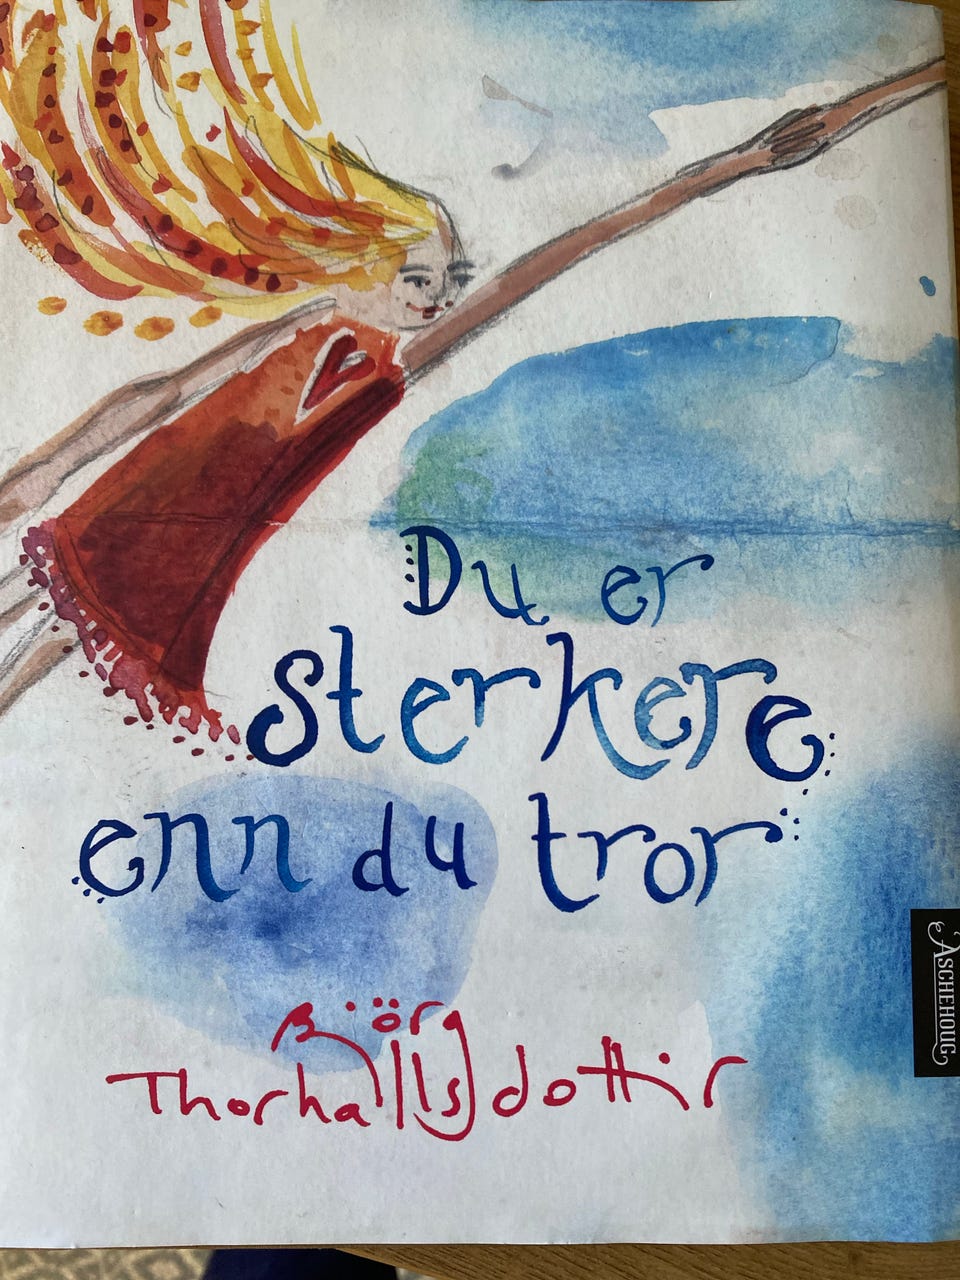 Du er
sterkere
enn du tror
Björg
Thorhallsdottir
ASCHEHOUG